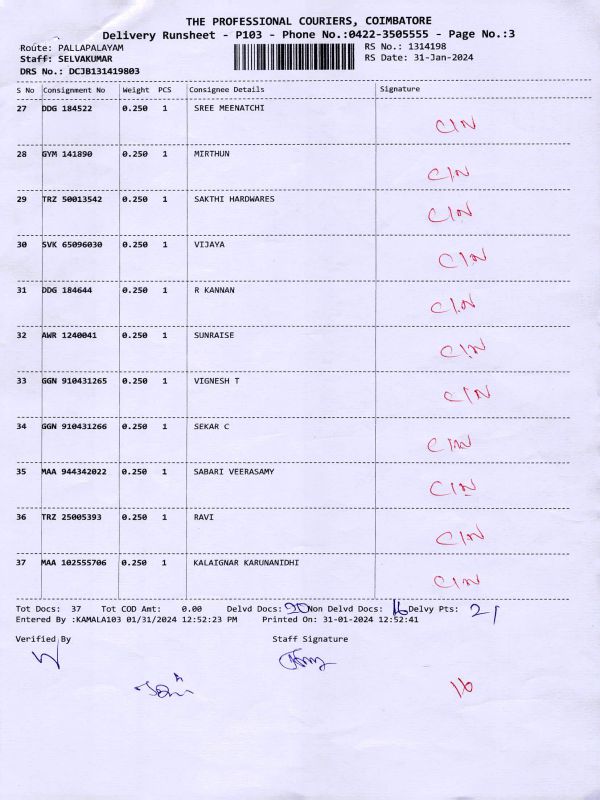 THE PROFESSIONAL COURIERS, COIMBATORE
Delivery Runsheet - P103 - Phone No.:0422-3505555 - Page No.:3
Route: PALLAPALAYAM RS No.: 1314198
Staff: SELVAKUMAR RS Date: 31-Jan-2024
DRS No.: DCJB131419803
S No Consignment No Weight PCS Consignee Details Signature
27 DDG 184522 0.250 1 SREE MEENATCHI CIN
28 GYM 141890 0.250 1 MIRTHUN CIN
29 TRZ 50013542 0.250 1 SAKTHI HARDWARES CIN
30 SVK 65096030 0.250 1 VIJAYA CIN
31 DDG 184644 0.250 1 R KANNAN CIN
32 AWR 1240041 0.250 1 SUNRAISE CIN
33 GGN 910431265 0.250 1 VIGNESH T CIN
34 GGN 910431266 0.250 1 SEKAR C CIN
35 MAA 944342022 0.250 1 SABARI VEERASAMY CIN
36 TRZ 25005393 0.250 1 RAVI CIN
37 MAA 102555706 0.250 1 KALAIGNAR KARUNANIDHI CIN
Tot Docs: 37 Tot COD Amt: 0.00 Delvd Docs: 20 Non Delvd Docs: 16 Delvy Pts: 21
Entered By :KAMALA103 01/31/2024 12:52:23 PM Printed On: 31-01-2024 12:52:41
Verified By Staff Signature
16